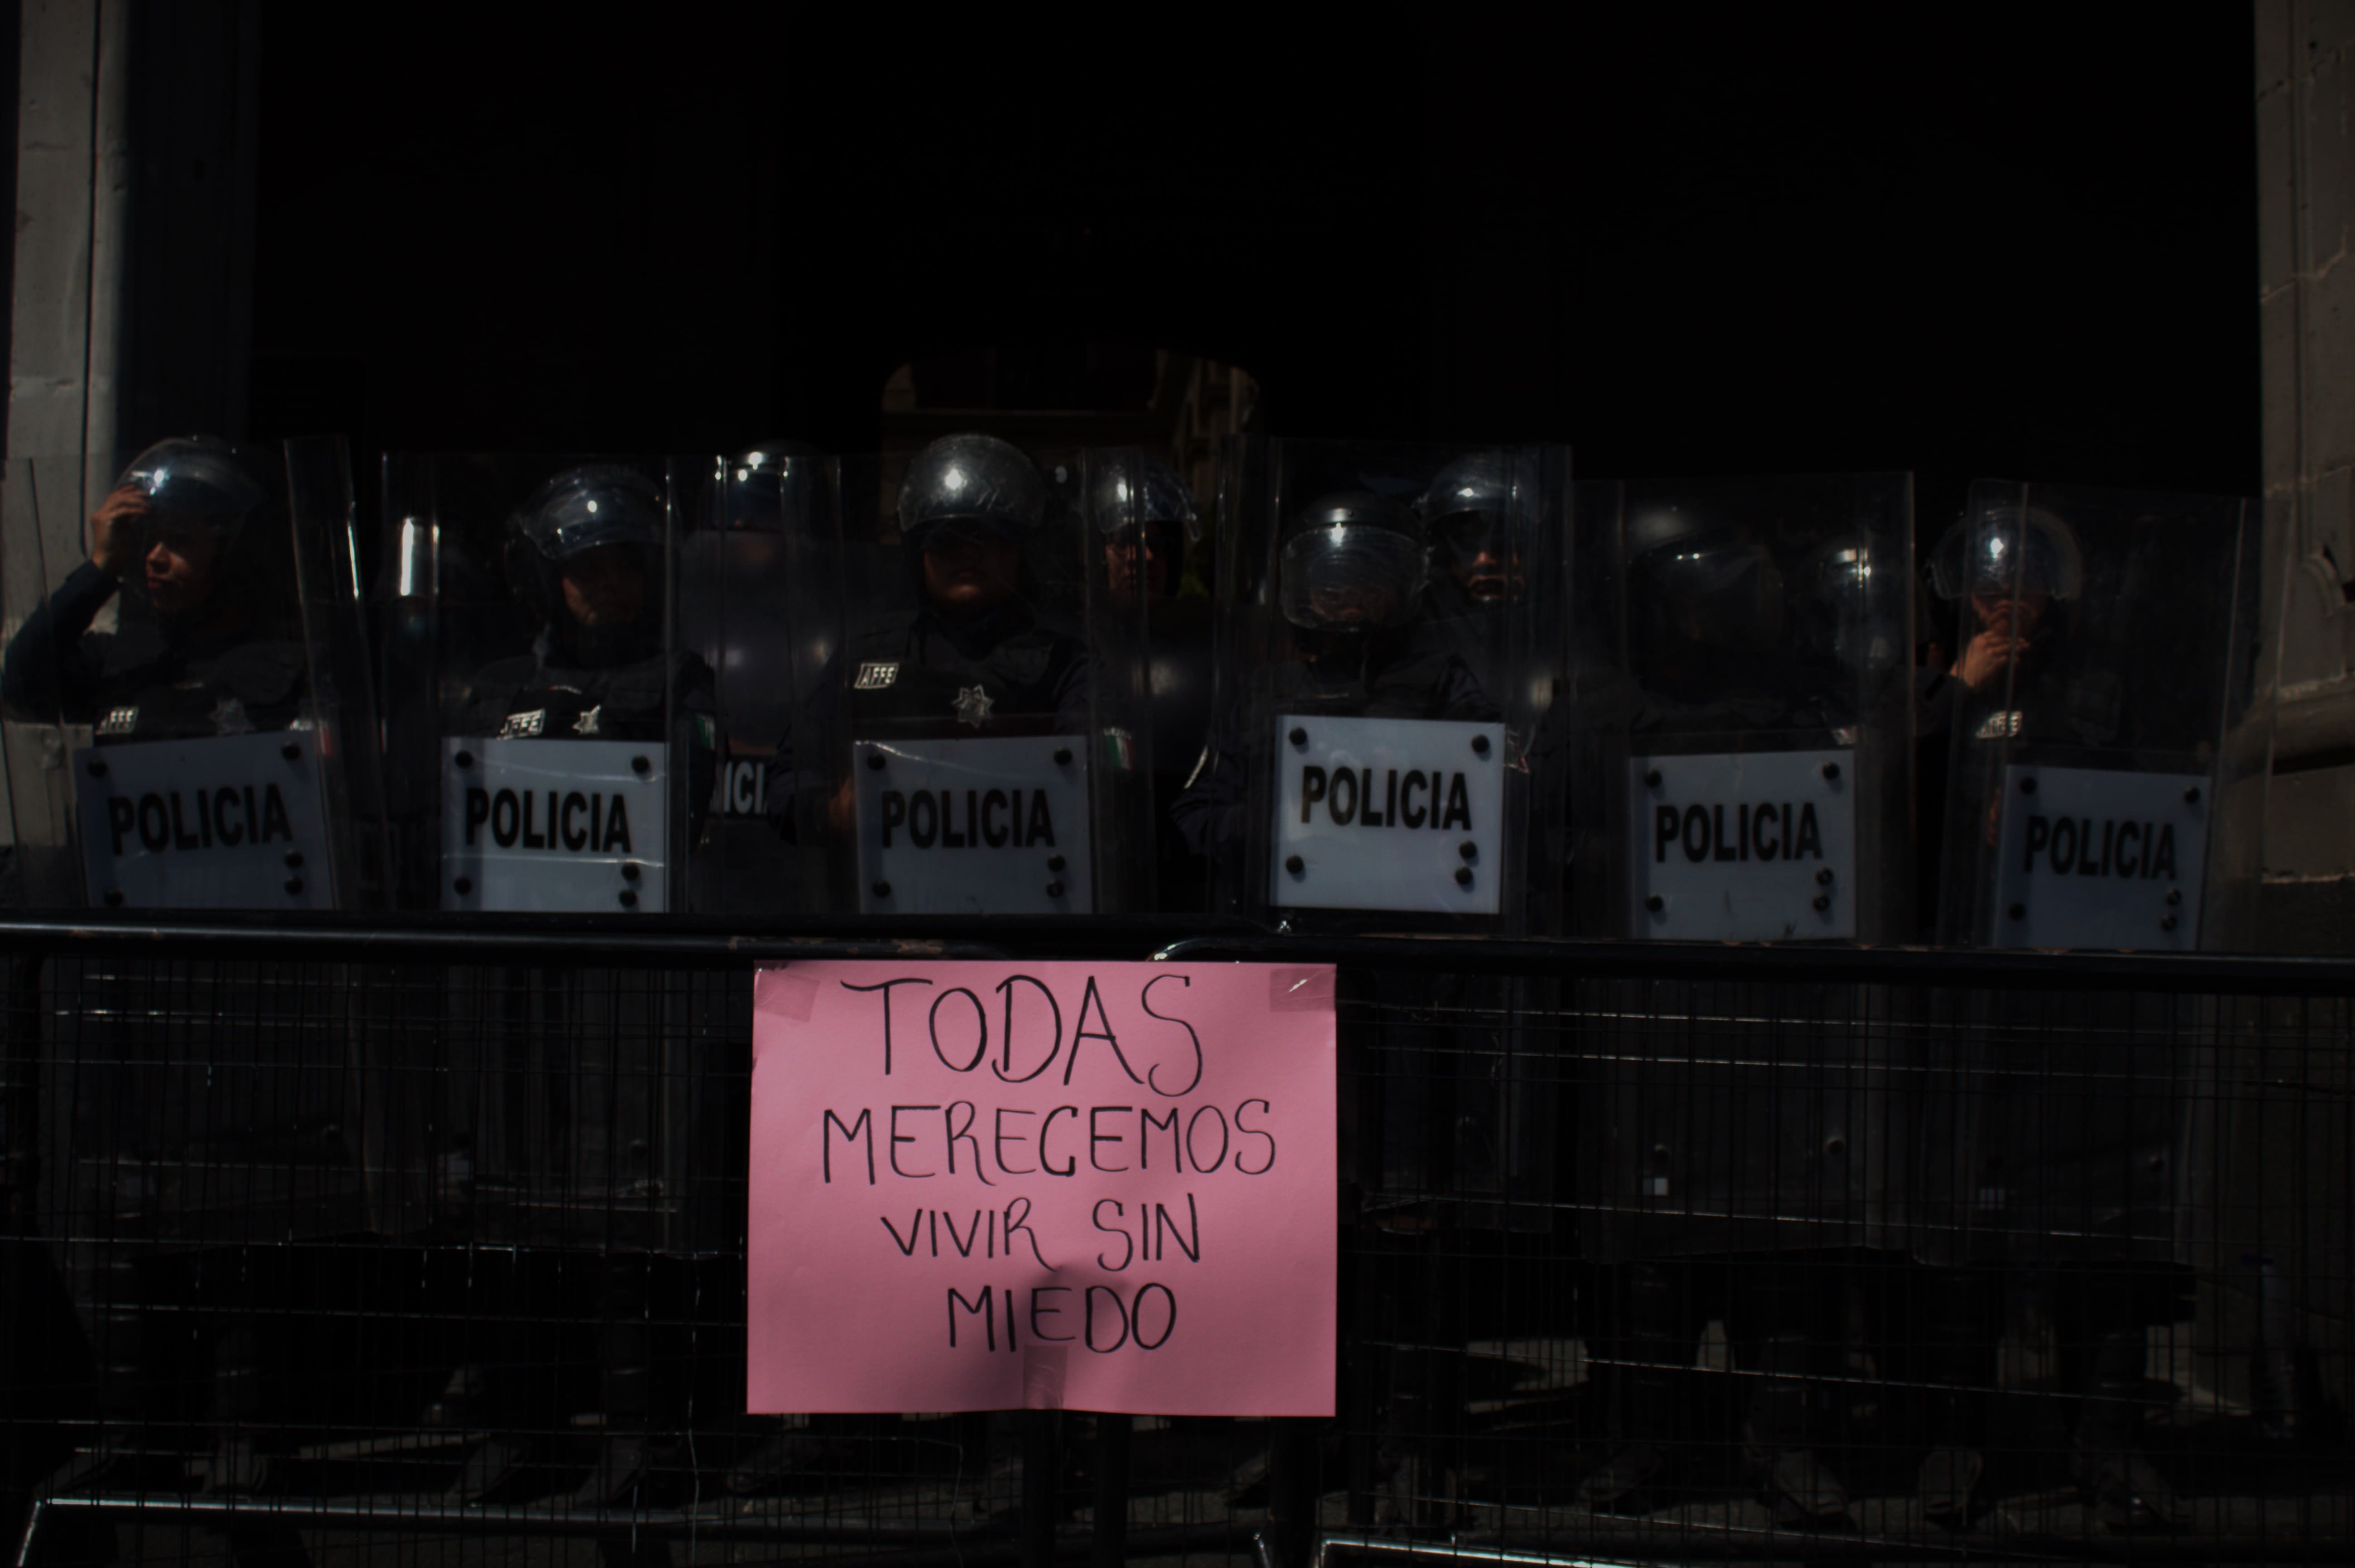 AFFE
AFFE
AFFE
AFFE
POLICIA
POLICIA
POLICIA
POLICIA
POLICIA
POLICIA
TODAS
MERECEMOS
VIVIR SIN
MIEDO